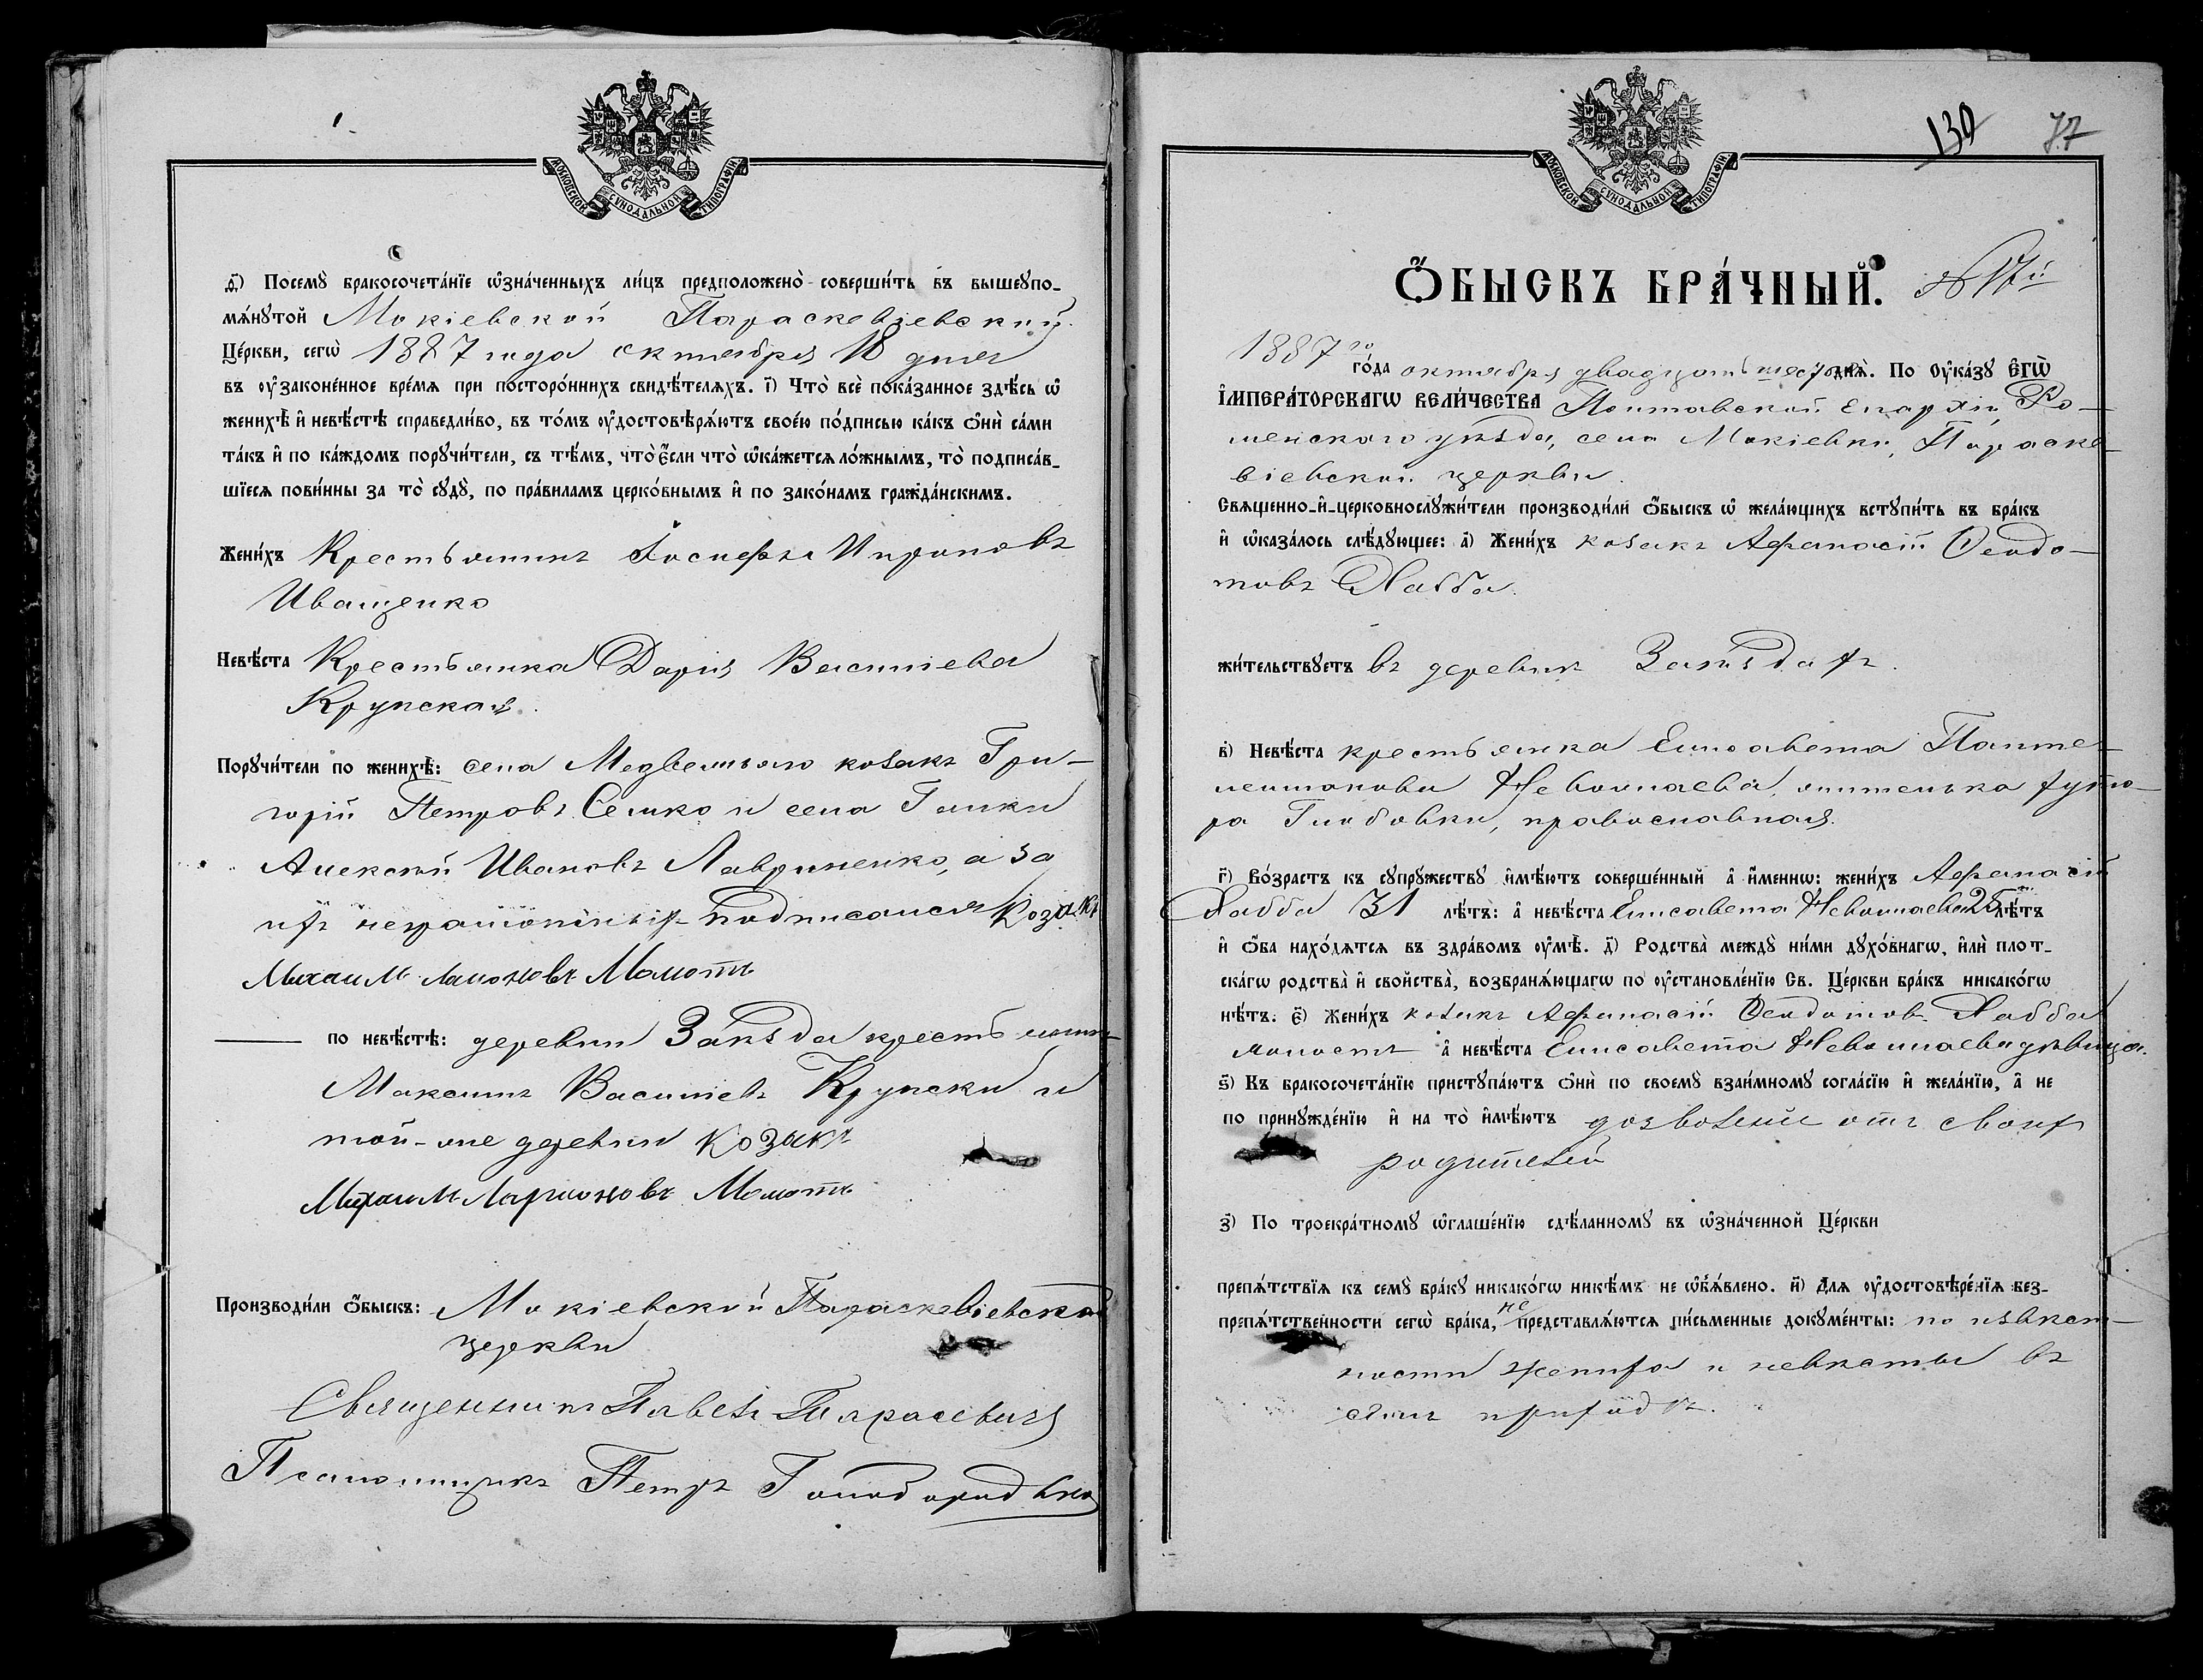 МОСКОВСКОЙ СѴНОДАЛЬНОЙ ТИПОГРАФІИ
д҃і) Посемꙋ̀ бракосочета́нїе ѡ҆зна́ченныхъ ли́цъ предположено̀ соверши́ть въ вышеꙋпо-
мѧ́нꙋтой Мокіевской Параскевіевской
Це́ркви, сегѡ̀ 1887 года октября 18 дня
въ ᲂу҆законе́нное вре́мѧ при посторо́ннихъ свидѣ́телѧхъ. і҃) Что̀ всѐ пока́занное здѣ́сь ѡ҆
женихѣ̀ и҆ невѣ́стѣ справедли́во, въ то́мъ ᲂу҆достовѣрѧ́ютъ свое́ю по́дписью ка́къ ѻ҆нѝ са́ми
та́къ и҆ по ка́ждомъ порꙋчи́тели, съ тѣ́мъ, что̀ є҆́сли что̀ ѡ҆ка́жетсѧ ло́жнымъ, то̀ подписа́в-
шїесѧ пови́нны за то̀ сꙋдꙋ̀, по пра́виламъ церко́внымъ и҆ по зако́намъ гражда́нскимъ.
Жени́хъ Крестьянинъ Іосифъ Мироновъ
Иващенко
Невѣ́ста Крестьянка Дарія Васильева
Крупская.
Порꙋчи́тели по женихѣ̀: села Медвежьяго козакъ Гри-
горій Петровъ Семко и села Галки
Алексѣй Ивановъ Лавриненко, а за
ихъ неграмотныхъ подписался Козакъ
Михаилъ Ларионовъ Мамотъ
по невѣ́стѣ: деревни Заѣзда крестьянинъ
Максимъ Васильевъ Крупский и
той-же деревни козакъ
Михаилъ Ларионовъ Мамотъ
Производи́ли ѻ҆́быскъ: Мокіевской Параскевіевской
церкви
Священникъ Павелъ Тарасевичъ
Псаломщикъ Петръ
МОСКОВСКОЙ СѴНОДАЛЬНОЙ ТИПОГРАФІИ
130 77
Ѻ҆́БЫСКЪ БРА́ЧНЫЙ. № 17й
1887го го́да октября двадцать шестого днѧ̀. По ᲂу҆ка́зꙋ Є҆гѡ̀
І҆мпера́торскагѡ вели́чества Полтавской Епархіи, Ро-
менского уѣзда, села Мокіевки, Параске-
віевской церкви.
Свѧщенно-и҆-церковнослꙋжи́тели производи́ли ѻ҆́быскъ ѡ҆ жела́ющихъ встꙋпи́ть въ бра́къ
и҆ ѡ҆каза́лось слѣ́дꙋющее: а҃) Жени́хъ козакъ Афанасій Феодо-
товъ Хабба.
жи́тельствꙋетъ въ деревнѣ Заѣздахъ.
в҃) Невѣ́ста крестьянка Елисавета Панте-
леимонова Неволнаева, жителька хуто-
ра Глобовки, православная.
г҃) Во́зрастъ къ сꙋпрꙋжествꙋ и҆мѣ́ютъ соверше́нный а҆ и҆́меннѡ: жени́хъ Афанасій
Хабба 31 лѣ́тъ: а҆ невѣ́ста Елисавета Неволнаева 25 лѣ́тъ
и҆ ѻ҆́ба нахо́дѧтсѧ въ здра́вомъ ᲂу҆мѣ̀. д҃) Родства̀ междꙋ̀ ни́ми дꙋхо́внагѡ, и҆лѝ плот-
ска́гѡ родства̀ и҆ свойства̀, возбранѧ́ющагѡ по ᲂу҆становле́нїю Св. Це́ркви бра́къ никако́гѡ
нѣ́тъ. є҃) Жени́хъ козакъ Афанасій Феодотовъ Хабба
холостъ а҆ невѣ́ста Елисавета Неволнаева дѣвица.
ѕ҃) Къ бракосочета́нїю пристꙋпа́ютъ ѻ҆нѝ по своемꙋ̀ взаи́мномꙋ согла́сїю и҆ жела́нїю, а҆ не
по принꙋжде́нїю и҆ на то̀ и҆мѣ́ютъ дозволеніе отъ своихъ
родителей
з҃) По троекра́тномꙋ ѡ҆глаше́нїю сдѣ́ланномꙋ въ ѡ҆зна́ченной Це́ркви
препѧ́тствїѧ къ семꙋ̀ бра́кꙋ никако́гѡ никѣ́мъ не ѡ҆б̾ѧ́влено. и҃) Длѧ ᲂу҆достовѣре́нїѧ без-
препѧ́тственности сегѡ̀ бра́ка, не представлѧ́ютсѧ пи́сьменные докꙋме́нты: по извѣст-
ности жениха и невѣсты въ
семъ приходѣ.